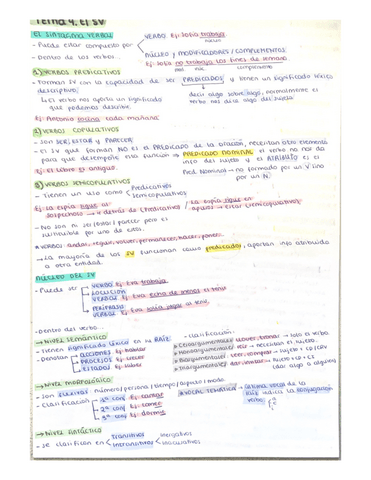 Tema 4. el SV
EL SINTAGMA VERBAL
- Puede estar compuesto por
VERBO Ej: Sofía trabaja
núcleo
NÚCLEO y MODIFICADORES / COMPLEMENTOS
Ej: Sofía no trabaja los fines de semana.
mod. núc. complemento
- Dentro de los verbos...
1) VERBOS PREDICATIVOS
- Forman SV con la capacidad de ser PREDICADOS y tienen un significado léxico
descriptivo;
decir algo sobre algo, normalmente el
verbo nos dirá algo del sujeto
↳ El verbo nos aporta un significado
que podemos describir.
Ej: Antonio cocina cada mañana.
2) VERBOS COPULATIVOS
- Son SER, ESTAR y PARECER
- El SV que forman NO es el PREDICADO de la oración, necesitan otro elemento
para que desempeñe esta función → PREDICADO NOMINAL
el verbo no nos da
info del sujeto y el ATRIBUTO sí
Ej: El libro es antiguo.
Pred. Nominal → no formado por un V sino
por un N.
3) VERBOS SEMICOPULATIVOS
- Tienen un uso como
Predicativos
Semicopulativos
Ej: La espía sigue al
sospechoso → ir detrás de (Predicativo) /
La espía sigue en
apuros → estar (semicopulativo)
- No son ni ser/estar/parecer pero es
sustituible por uno de estos.
* VERBOS: andar, seguir, volver, permanecer, hacer, poner.
→ La mayoría de los SV funcionan como predicados, aportan info atribuida
a otra entidad.
NÚCLEO DEL SV
- Puede ser
VERBO Ej: Eva trabaja
LOCUCIÓN
VERBAL Ej: Eva echa de menos el tono
PERÍFRASIS
VERBAL Ej: Eva tenía que ir al
- Dentro del verbo...
→ NIVEL SEMÁNTICO
- Tienen significado léxico en la RAÍZ
- Denotan
ACCIONES Ej: hablar
PROCESOS Ej: crecer
ESTADOS Ej: saber
- Clasificación:
Ceroargumentales: llover, tronar → solo el verbo
Monoargumentales: reír → necesitan el sujeto.
Biargumentales: leer, comprar → sujeto + CD/CRV
Triargumentales: dar, contar → sujeto + CD + CI
(dar algo a alguien)
→ NIVEL MORFOLÓGICO
- Son FLEXIVOS: número/persona/tiempo/aspecto/modo.
- Clasificación
1ª conj Ej: cantar
2ª conj Ej: comer
3ª conj Ej: dormir
* VOCAL TEMÁTICA → última vocal de la
raíz indica la conjugación
verbo
a
e
i
→ NIVEL SINTÁCTICO
- Se clasifican en
Transitivos
Intransitivos
Inergativos
Inacusativos